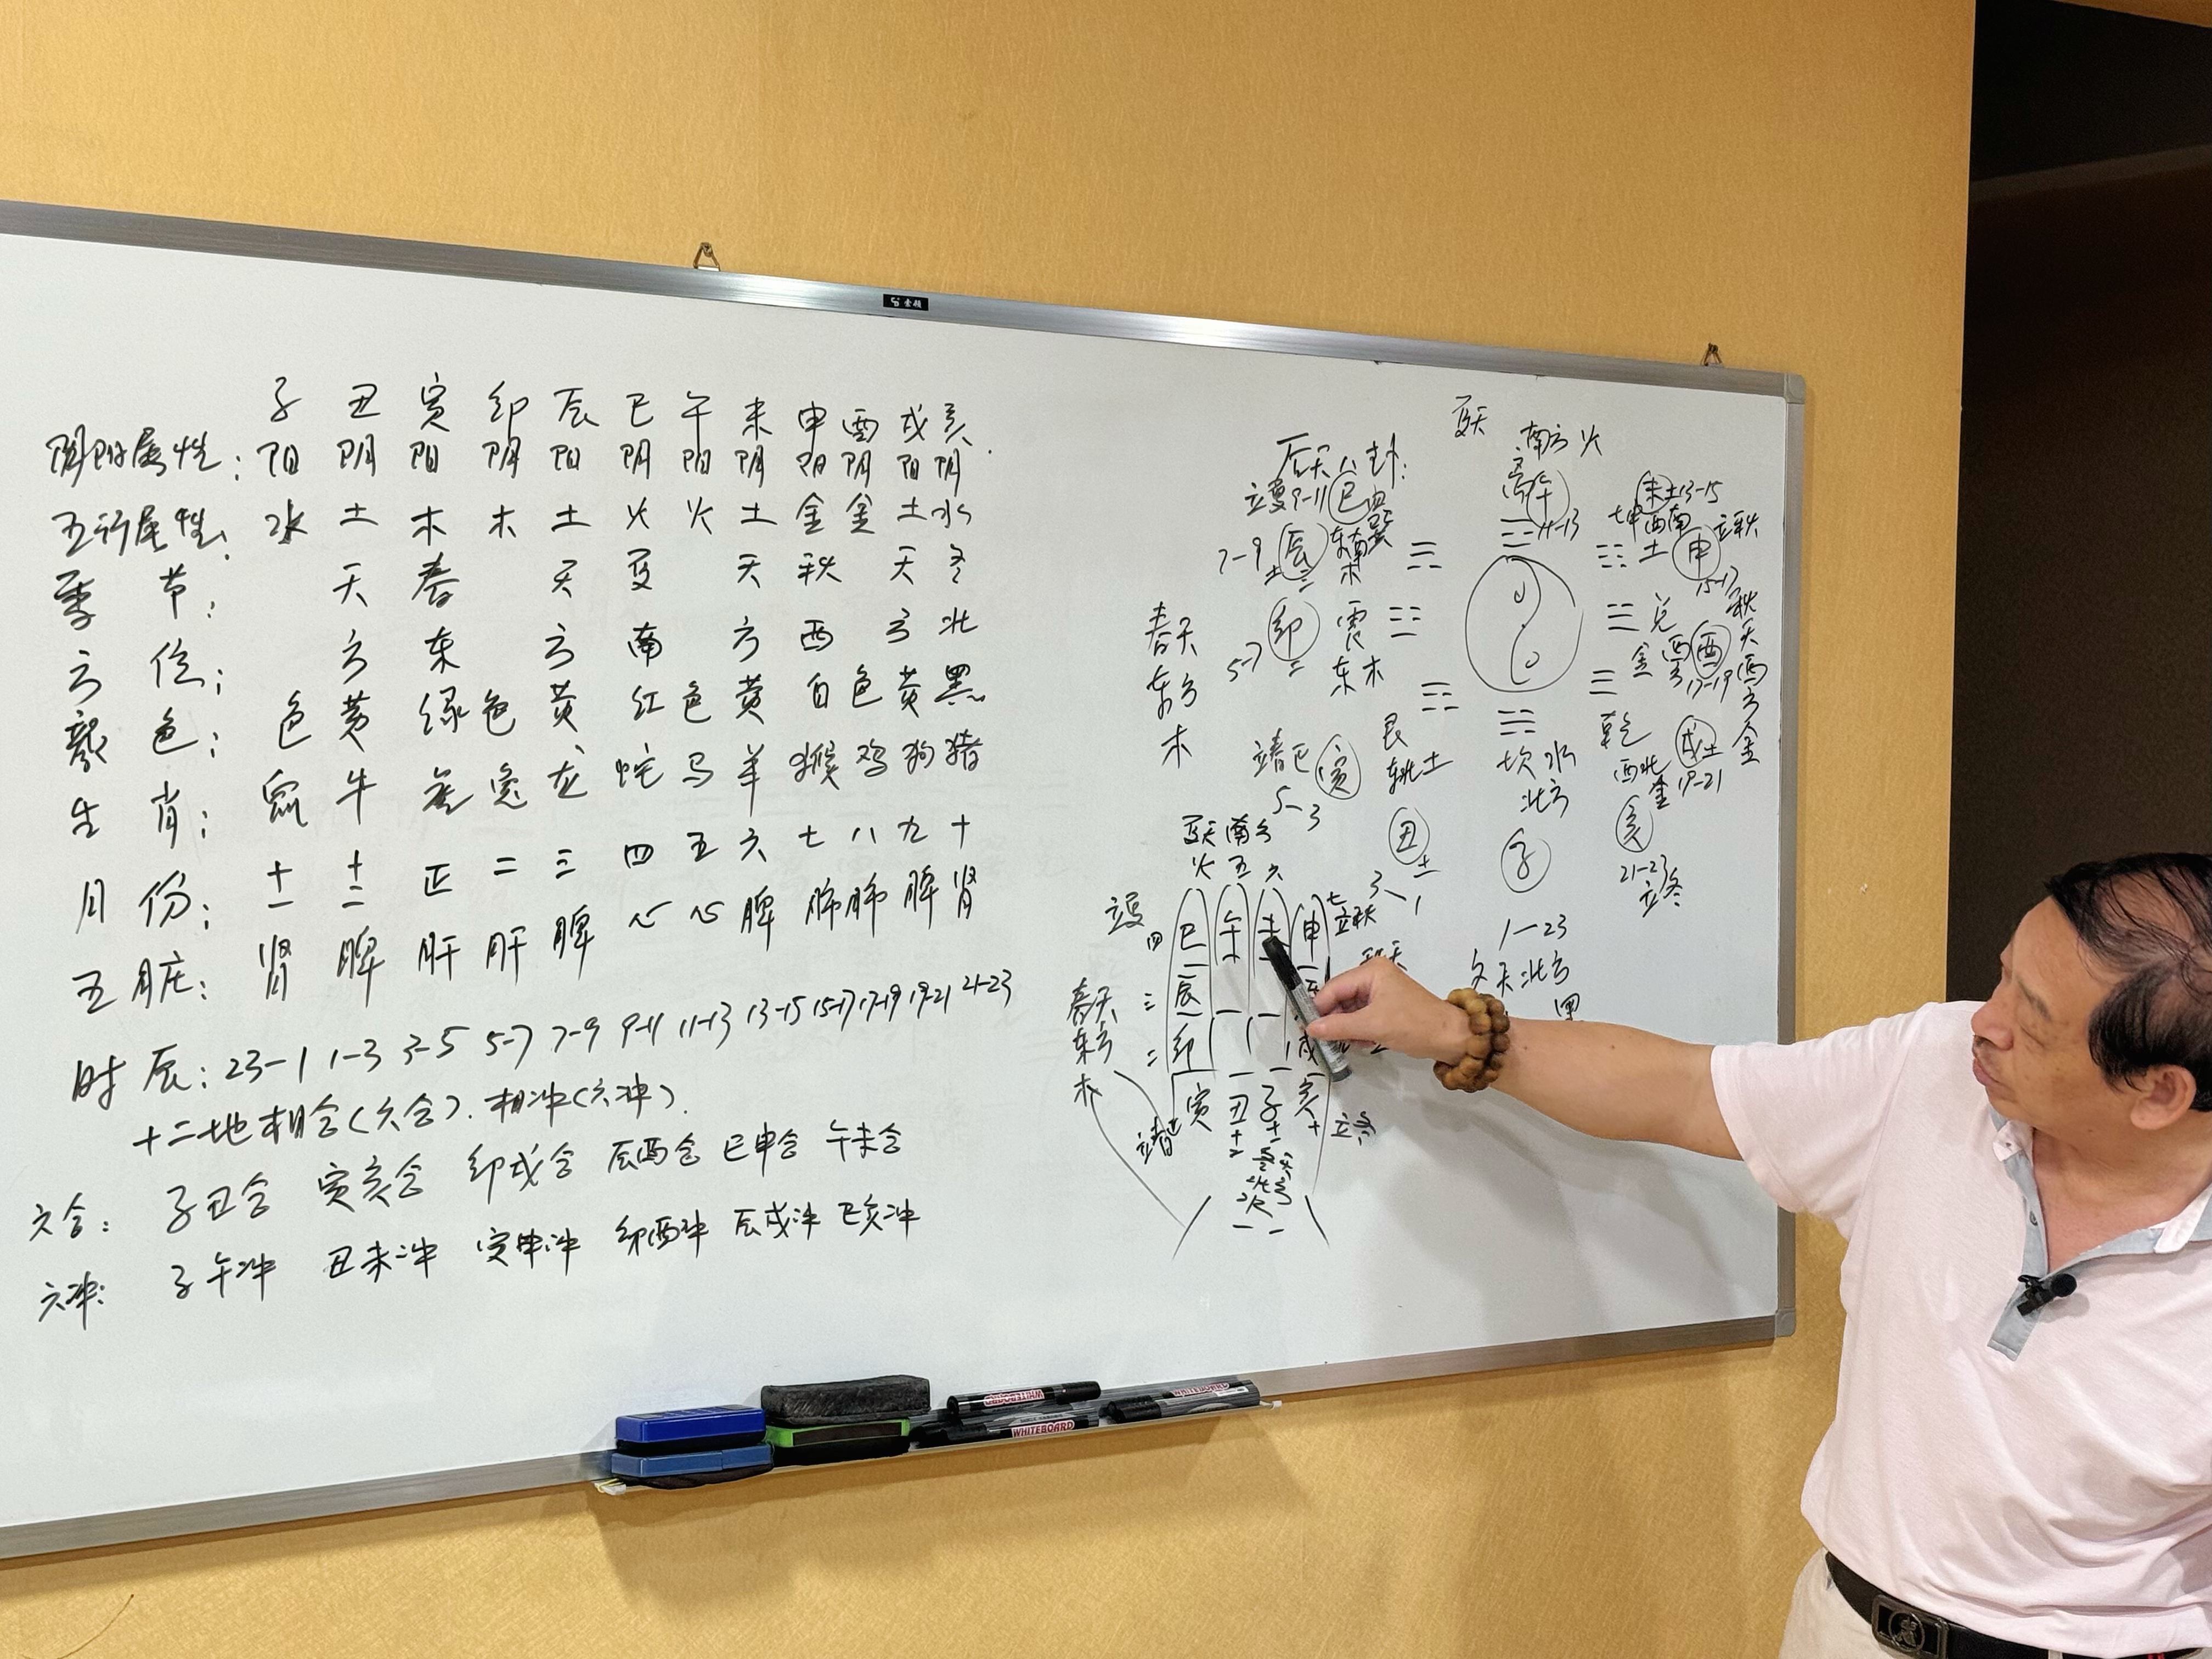 子 丑 寅 卯 辰 巳 午 未 申 酉 戌 亥
阴阳属性: 阳 阴 阳 阴 阳 阴 阳 阴 阳 阴 阳 阴
五行属性: 水 土 木 木 土 火 火 土 金 金 土 水
季 节: 天 春 天 夏 天 秋 天 冬
方 位: 方 东 方 南 方 西 方 北
颜 色: 色 黄 绿 色 黄 红 色 黄 白 色 黄 黑
生 肖: 鼠 牛 虎 兔 龙 蛇 马 羊 猴 鸡 狗 猪
月 份: 十一 十二 正 二 三 四 五 六 七 八 九 十
五 脏: 肾 脾 肝 肝 脾 心 心 脾 肺 肺 脾 肾
时 辰: 23-1 1-3 3-5 5-7 7-9 9-11 11-13 13-15 15-17 17-19 19-21 21-23
十二地相合(六合). 相冲(六冲).
六合: 子丑合 寅亥合 卯戌合 辰酉合 巳申合 午未合
六冲: 子午冲 丑未冲 寅申冲 卯酉冲 辰戌冲 巳亥冲
夏天
南方火
后天八卦:
立夏 9-11 巳 四
离 午
11-13
未 土 13-15
坤 西南
土 申 立秋
15-17
7-9 土 辰 三
东南 巽
木
春天
东方
木
卯 二
5-7
震
东木
兑
金 西方 酉
17-19
秋天西方金
立春 正 寅
5-3
艮
东北土
坎水
北方
乾
西北
金
戌 土
19-21
丑 土
3-1
子
1-23
冬天北方
黑
亥
21-23
立冬
夏天南方
火 五 六
立夏 四 巳 午 未 申 七 立秋
三 辰
二 卯 戌
春天
东方
木
立春 正 寅 丑 子 亥 十 立冬
十二 十一
冬天
北方
水
WHITEBOARD
WHITEBOARD
WHITEBOARD